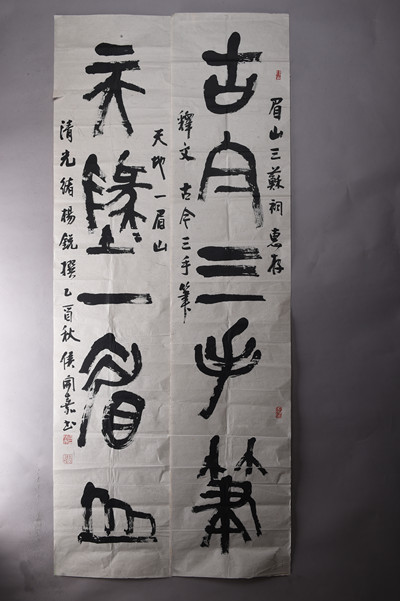 眉山三蘇祠惠存
古今三手筆
釋文 古今三手筆
天地一眉山
天地一眉山
清光緒楊銳撰乙酉秋侯開嘉书